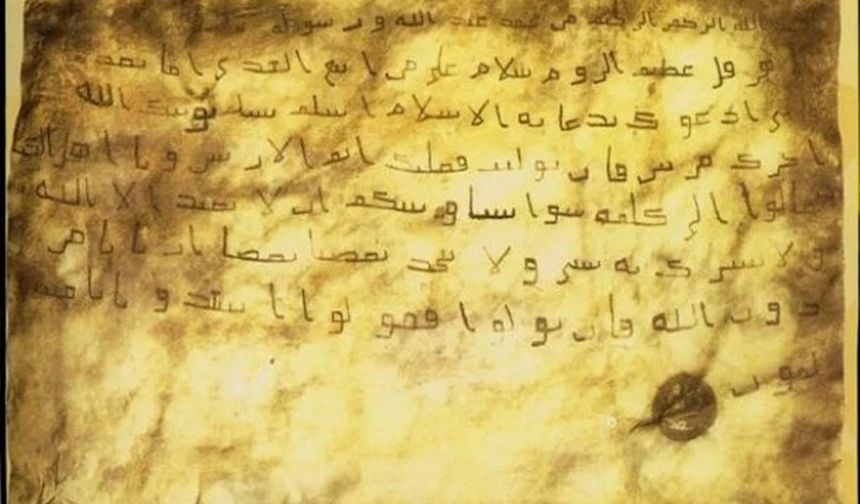 الله الرحمن الرحيم من محمد عبد الله و رسوله
هرقل عظيم الروم سلام على من اتبع الهدى اما بعد
ى ادعوك بدعاية الاسلام اسلم تسلم يوتيك الله
اجرك مرتين فان توليت فعليك اثم الاريسين و يا اهل الكتـ
تعالوا الى كلمة سوا بيننا و بينكم ان لا نعبد الا الله
و لا نشرك به شى و لا يتخذ بعضنا بعضا اربابا من
دون الله فان تولوا فقولوا اشهدوا بانا مسـ
لمون